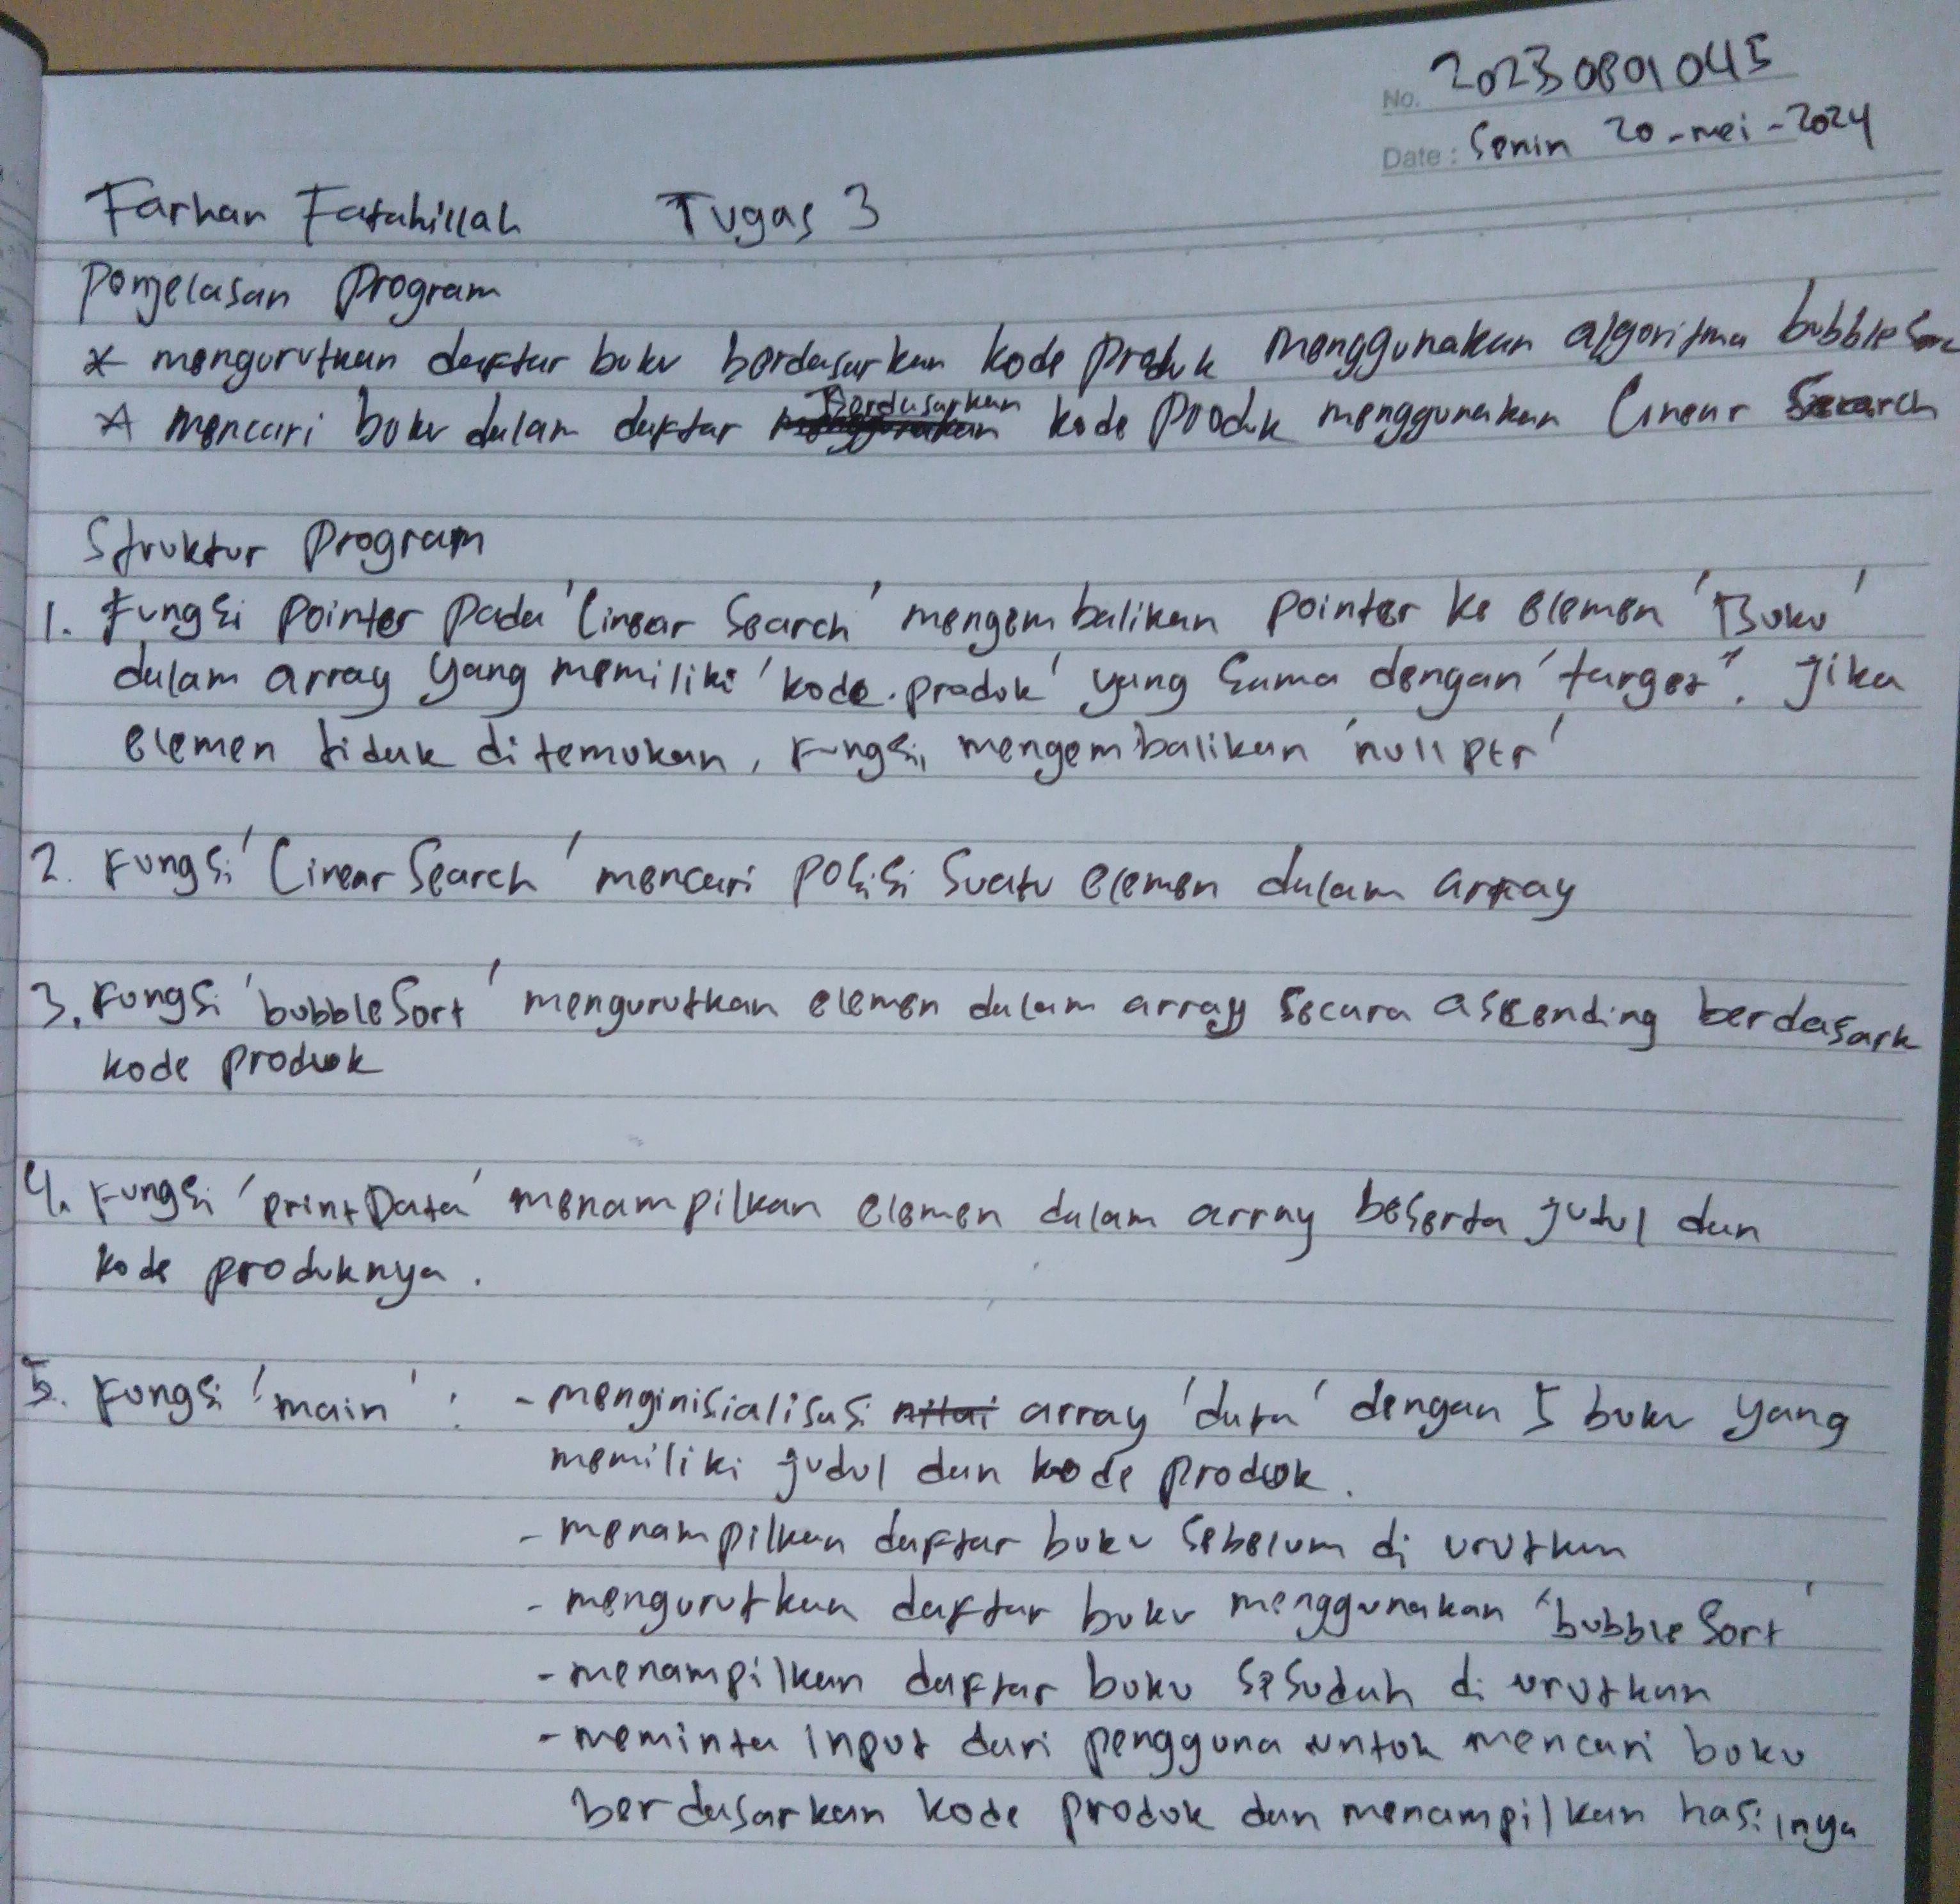 No. 20230801045
Date : Senin 20-mei-2024
Farhan Fatahillah Tugas 3
Penjelasan Program
* mengurutkan daftar buku berdasarkan kode produk menggunakan algoritma bubble
* mencari buku dalam daftar Berdasarkan kode Produk menggunakan linear Search
Struktur Program
1. Fungsi Pointer Pada 'linear Search' mengembalikan pointer ke elemen 'Buku'
dalam array yang memiliki 'kode.produk' yang sama dengan 'target'. Jika
elemen tidak ditemukan, Fungsi mengembalikan 'nullptr'
2. Fungsi 'linearSearch' mencari posisi suatu elemen dalam array
3. Fungsi 'bubbleSort' mengurutkan elemen dalam array secara ascending berdasark
kode produk
4. Fungsi 'printData' menampilkan elemen dalam array beserta judul dan
kode produknya.
5. Fungsi 'main' : - menginisialisasi nilai array 'data' dengan 5 buku yang
memiliki judul dan kode produk.
- menampilkan daftar buku sebelum di urutkan
- mengurutkan daftar buku menggunakan 'bubbleSort'
- menampilkan daftar buku sesudah di urutkan
- meminta input dari pengguna untuk mencari buku
berdasarkan kode produk dan menampilkan hasilnya